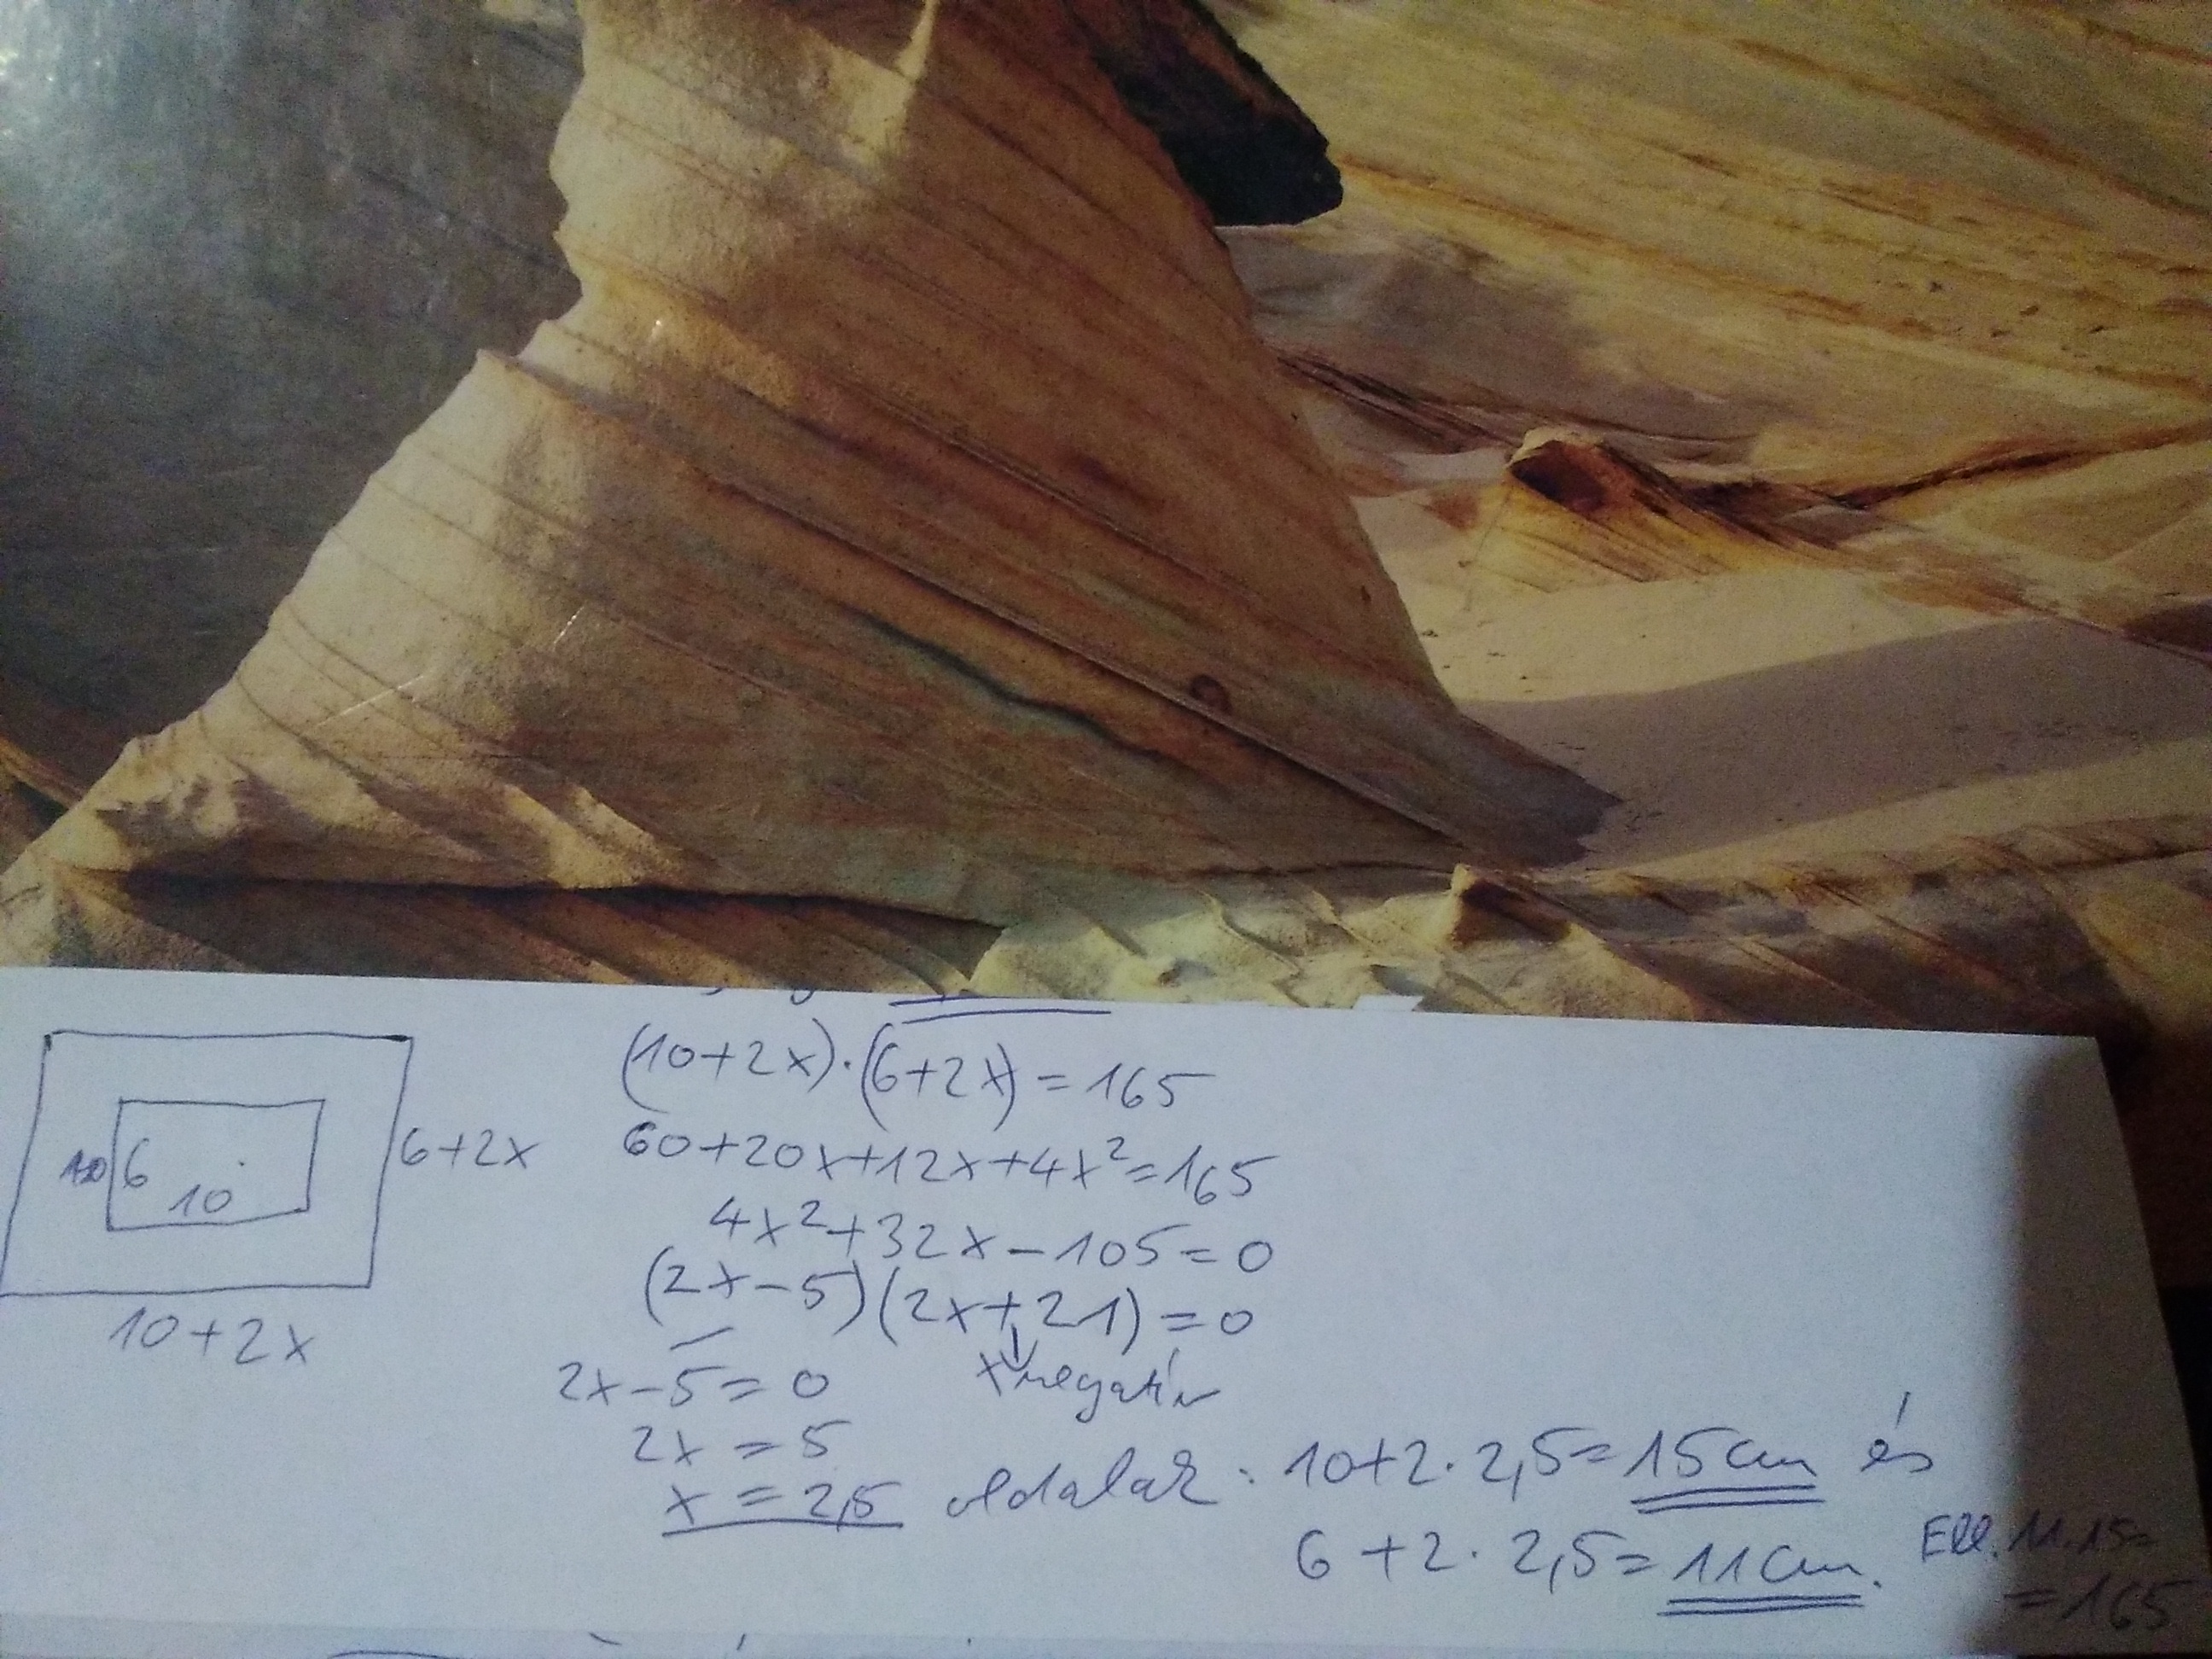 (10+2x)·(6+2x)=165
6+2x
60+20x+12x+4x²=165
6
10
4x²+32x-105=0
(2x-5)(2x+21)=0
10+2x
2x-5=0
x negatív
2x=5
x=2,5
oldalak: 10+2·2,5=15cm és
6+2·2,5=11cm.
Ell. 11·15=
=165